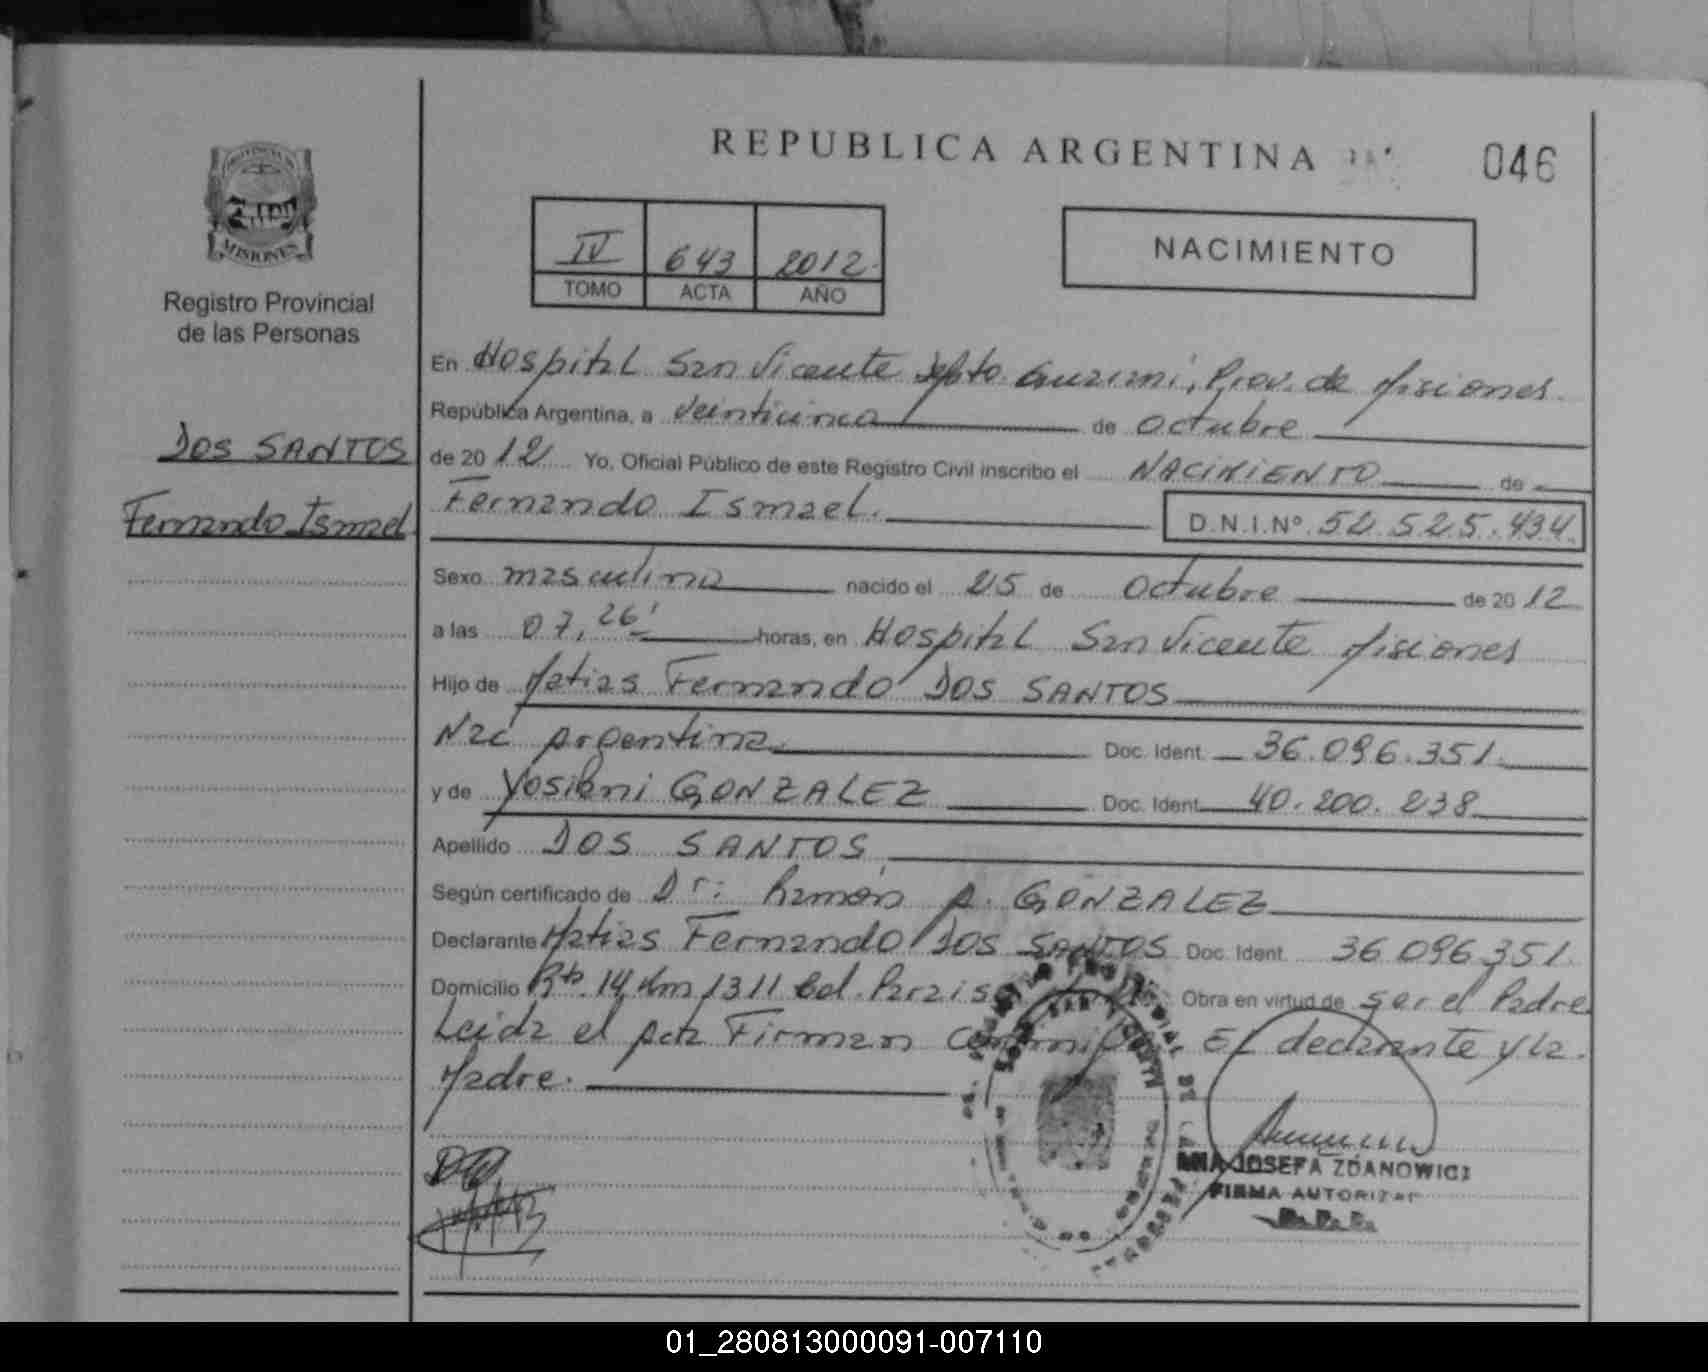 REPUBLICA ARGENTINA
046
PROVINCIA DE
MISIONES
Registro Provincial
de las Personas
IV 643 2012
TOMO ACTA AÑO
NACIMIENTO
DOS SANTOS
Fernando Ismael
En Hospital San Vicente Dpto. Guarani, Prov. de Misiones
República Argentina, a veinticinco de Octubre
de 2012 Yo, Oficial Público de este Registro Civil inscribo el NACIMIENTO de
Fernando Ismael. D.N.I.Nº 52.525.434
Sexo masculino nacido el 25 de Octubre de 2012
a las 07,26' horas, en Hospital San Vicente Misiones
Hijo de Matias Fernando DOS SANTOS
Nac Argentina Doc. Ident. 36.096.351.
y de GONZALEZ Doc. Ident. 40.200.238
Apellido DOS SANTOS
Según certificado de Dr: Ramón A. GONZALEZ
Declarante Matias Fernando DOS SANTOS Doc. Ident. 36.096.351.
Domicilio Rta. 14 Km 1311 Col. Obra en virtud de ser el Padre
Leida el acta Firman El declarante y la
Madre.
ANA JOSEFA ZDANOWICZ
FIRMA
01_280813000091-007110